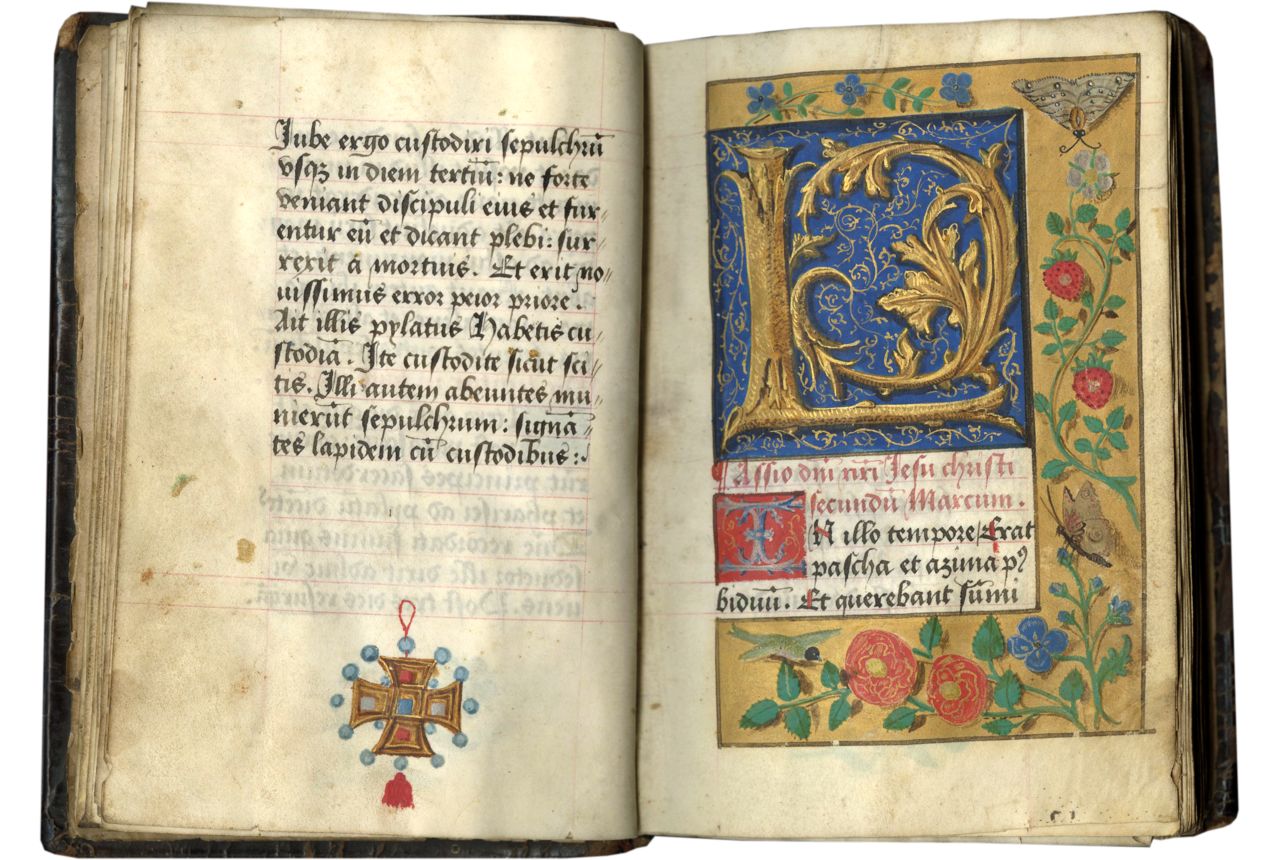 Iube ergo custodiri sepulchrū
vsqꝫ in diem tertiū: ne forte
veniant discipuli eius et fur-
entur eū et dicant plebi: sur-
rexit a mortuis. Et erit no-
uissimus error peior priore.
Ait illis pylatus Habetis cu-
stodiā. Ite custodite sicut sci-
tis. Illi autem abeuntes mu-
nierūt sepulchrum: signā-
tes lapidem cū custodibus:.
P
Assio dn̄i nr̄i Jesu christi
secundū Marcum.
IN illo tempore Erat
pascha et azima pꝰ
biduū. Et querebant sūmi